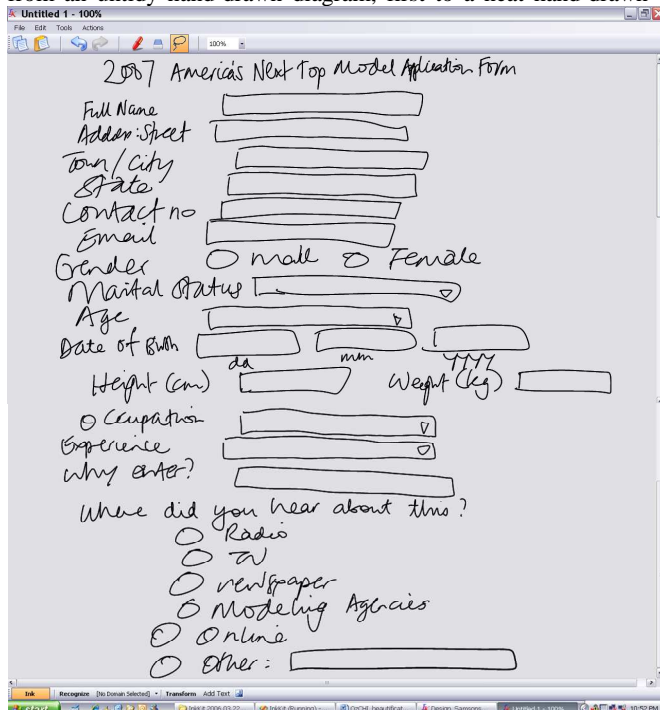 from an untidy hand drawn diagram, first to a neat hand drawn
Untitled 1 - 100%
File Edit Tools Actions
100%
2007 America's Next Top Model Application Form
Full Name
Address: Street
Town / City
State
Contact no
Email
Gender Male Female
Marital Status
Age
Date of Birth
dd mm YYYY
Height (cm) Weight (kg)
Occupation
Experience
Why enter?
Where did you hear about this?
Radio
TV
newspaper
Modeling Agencies
Online
Other:
Ink Recognize [No Domain Selected] Transform Add Text
start InkKit 2006.03.22 InkKit (Running) - OzCHI_beautificat Design_Samsons Untitled 1 - 100% 10:52 PM